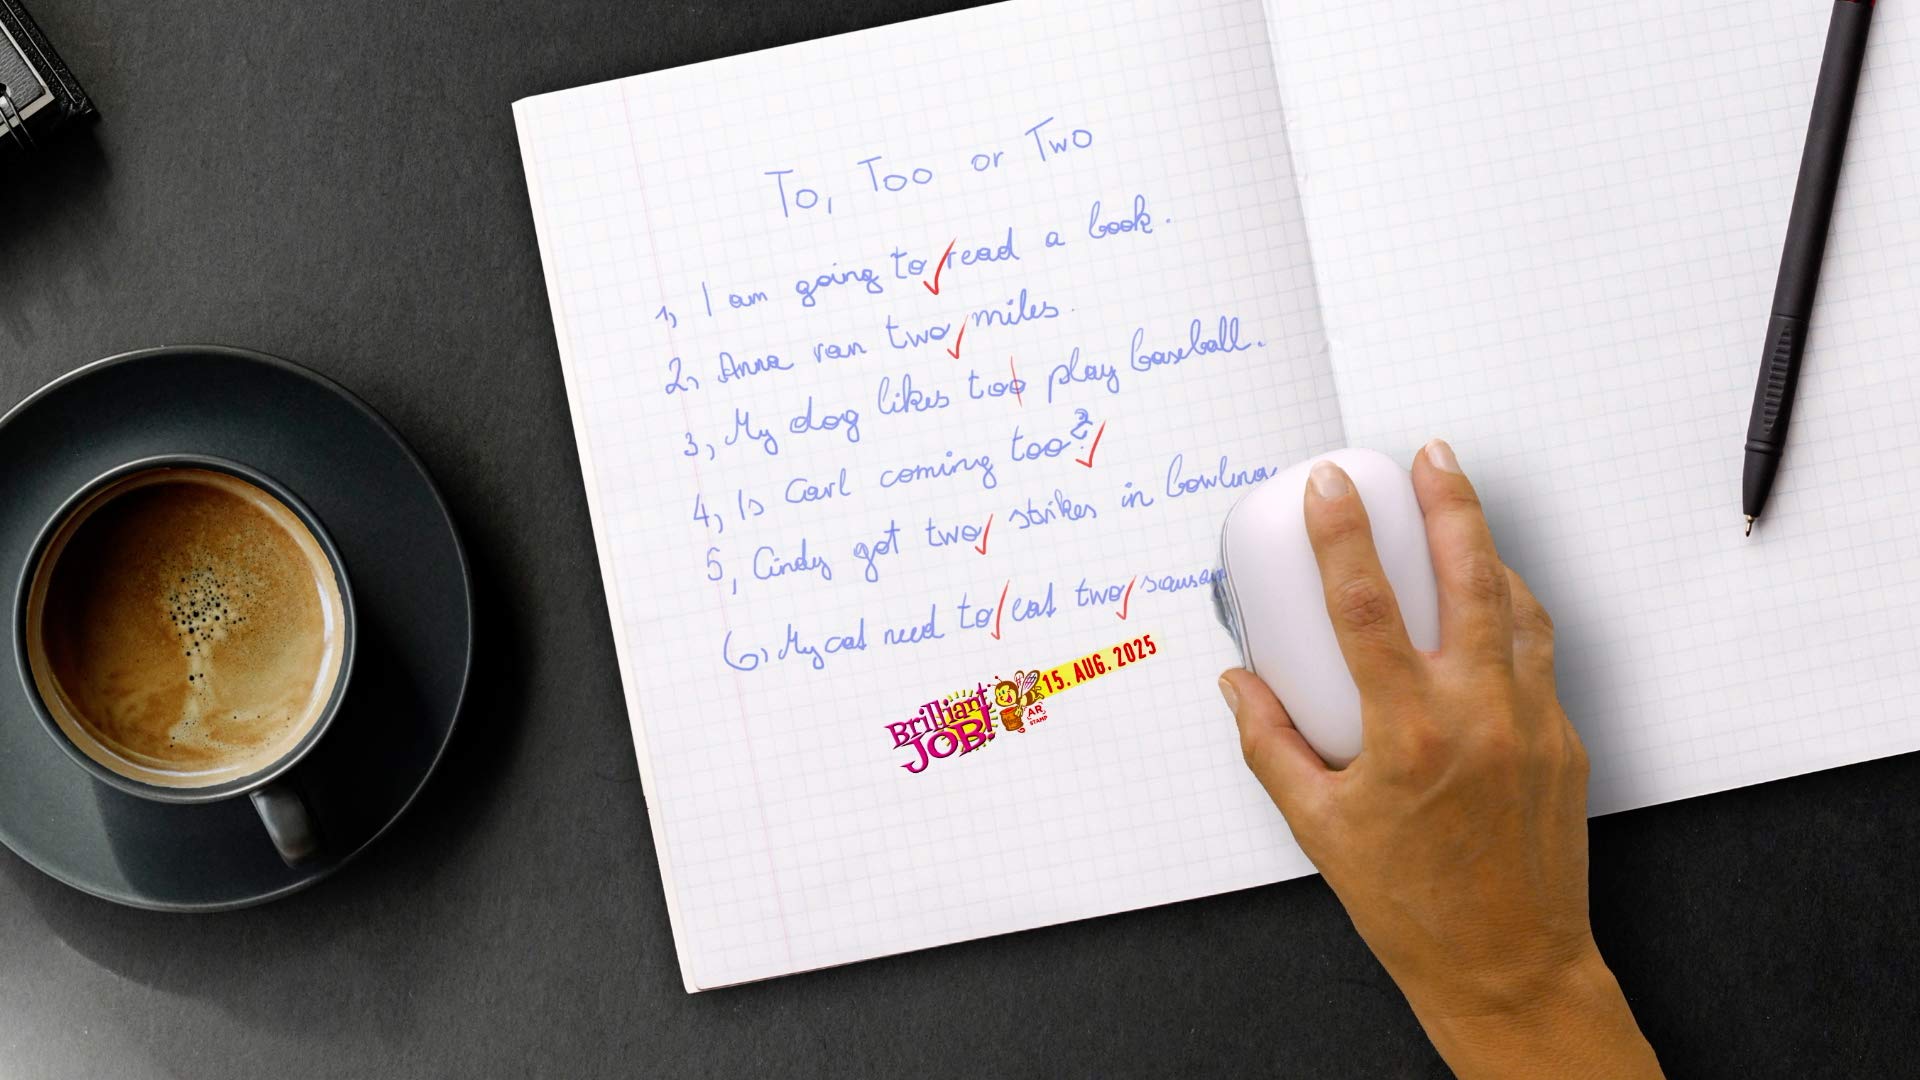 To, Too or Two
1, I am going to read a book.
2, Anna ran two miles.
3, My dog likes too play baseball.
4, Is Carl coming too?
5, Cindy got two strikes in bowling
6, My cat need to eat two
Brilliant JOB!
15. AUG. 2025
AR STAMP